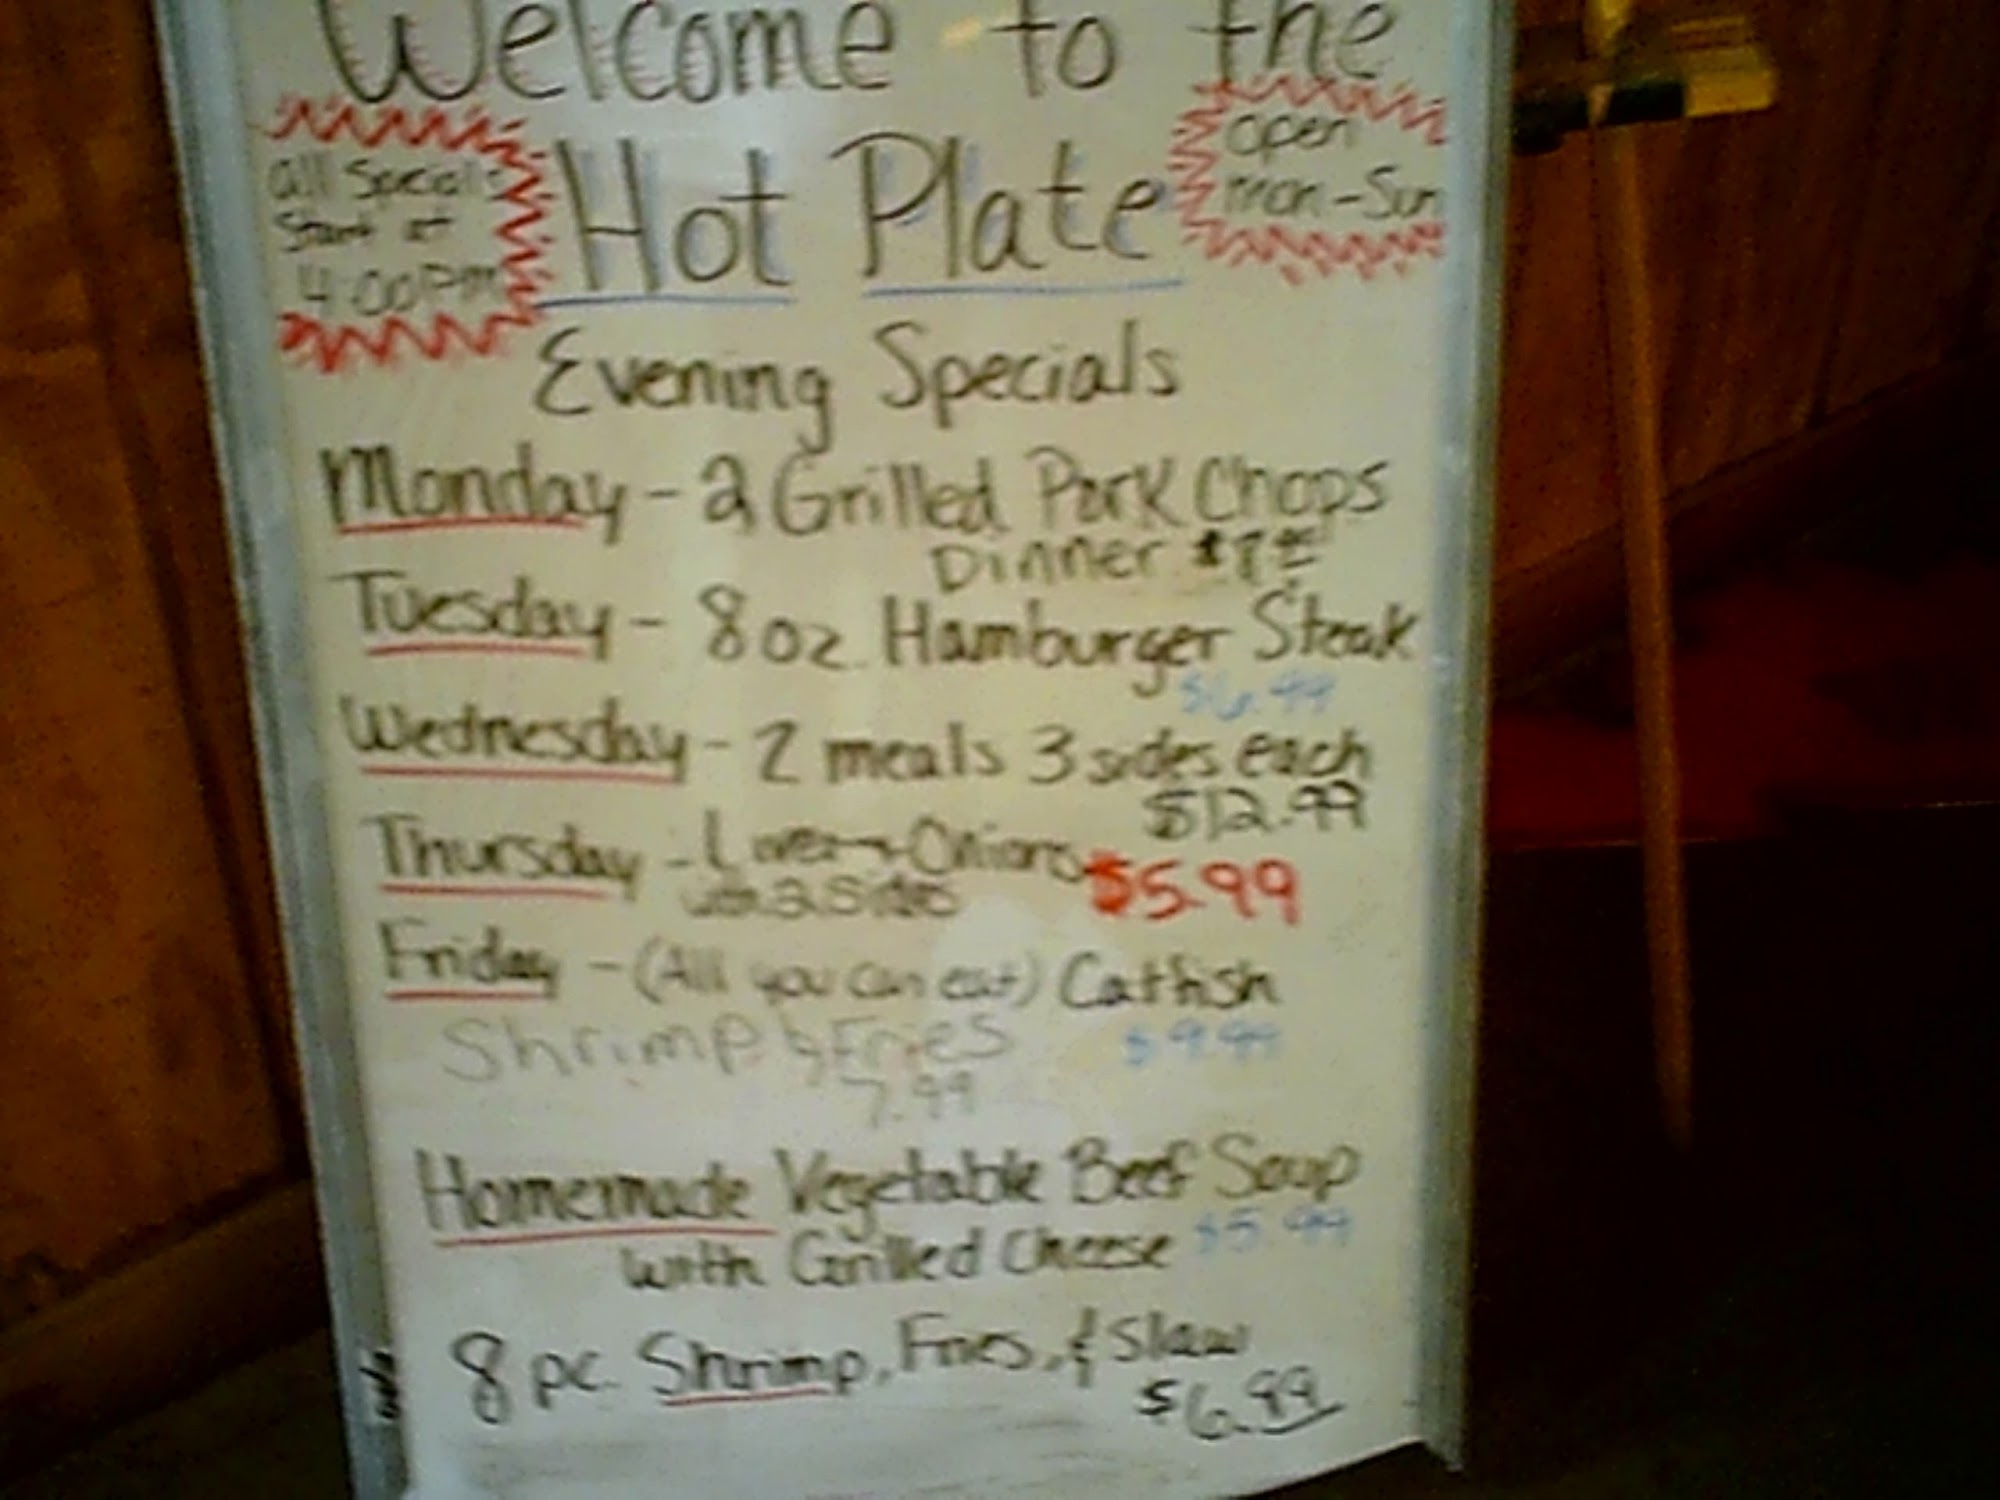 Welcome to the
All Specials
Start at
4:00 PM
Hot Plate
open
mon-Sun
Evening Specials
Monday - 2 Grilled Pork Chops
Dinner
Tuesday - 8 oz Hamburger Steak
$6.99
Wednesday - 2 meals 3 sides each
$12.99
Thursday - Liver Onions $5.99
with 2 Sides
Friday - (All you can eat) Catfish
$9.99
Shrimp & Fries
7.99
Homemade Vegetable Beef Soup
with Grilled Cheese $5.99
8 pc. Shrimp, Fries, & Slaw
$6.99